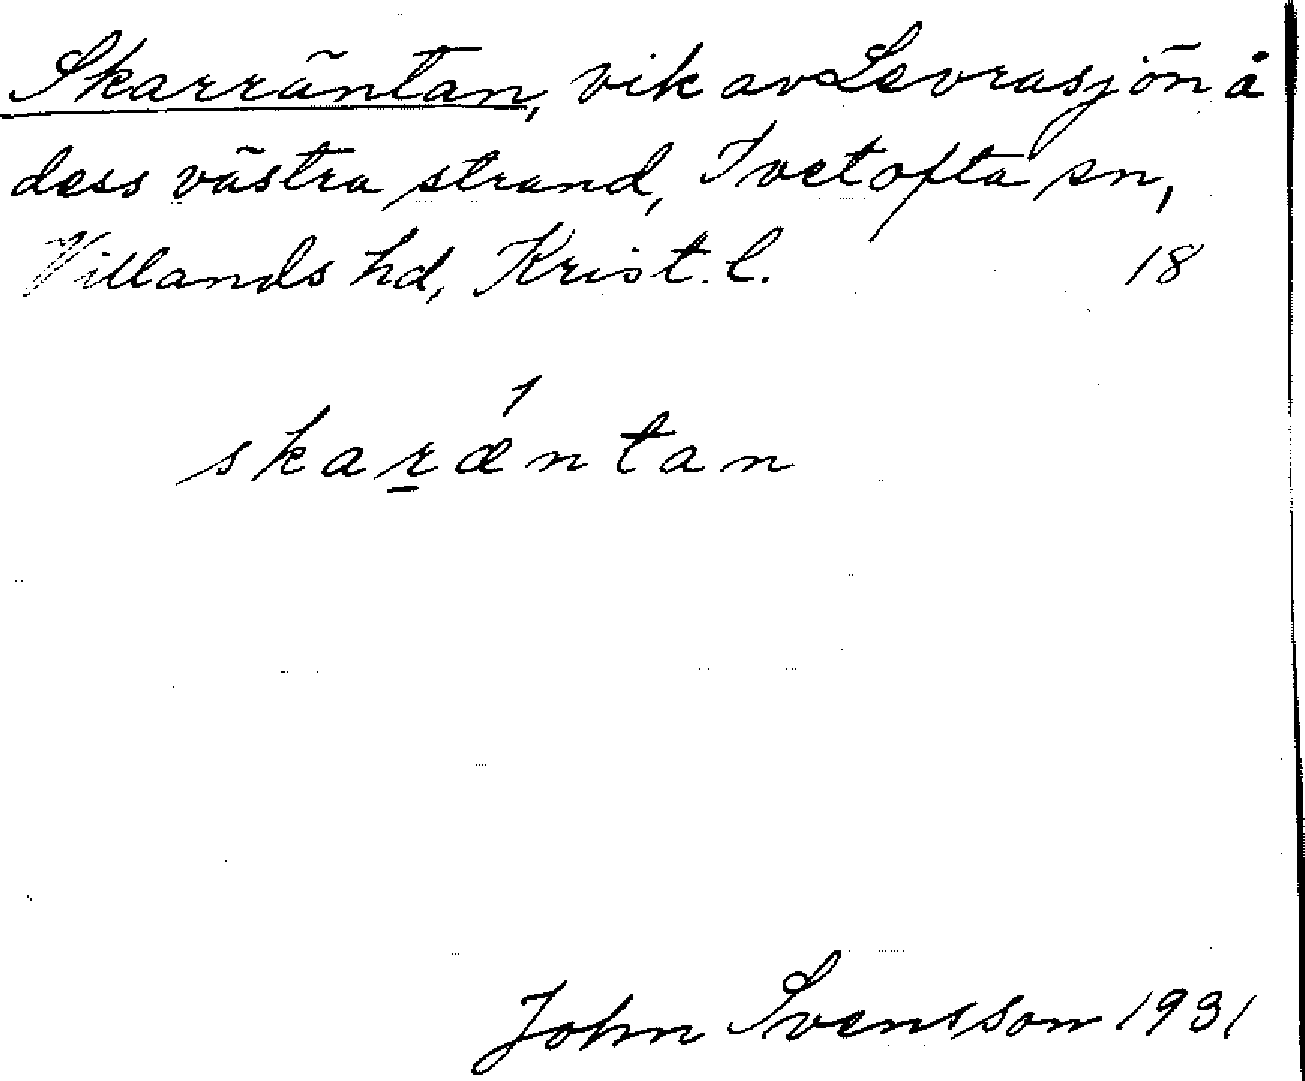 Skarräntan, vik av Levrasjön å
dess västra strand, Ivetofta sn,
Villands hd, Krist. l. 18
skaṟǽntan
John Svensson 1931